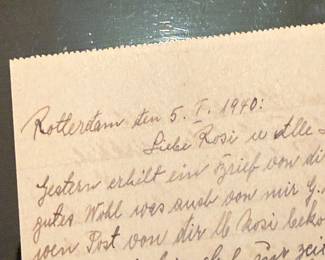 Rotterdam den 5. I. 1940:
Liebe Rosi u Alle
Gestern erhilt ein Brief von di
gutes Wohl was auch von mir G.
wen Post von dir lb Rosi beko